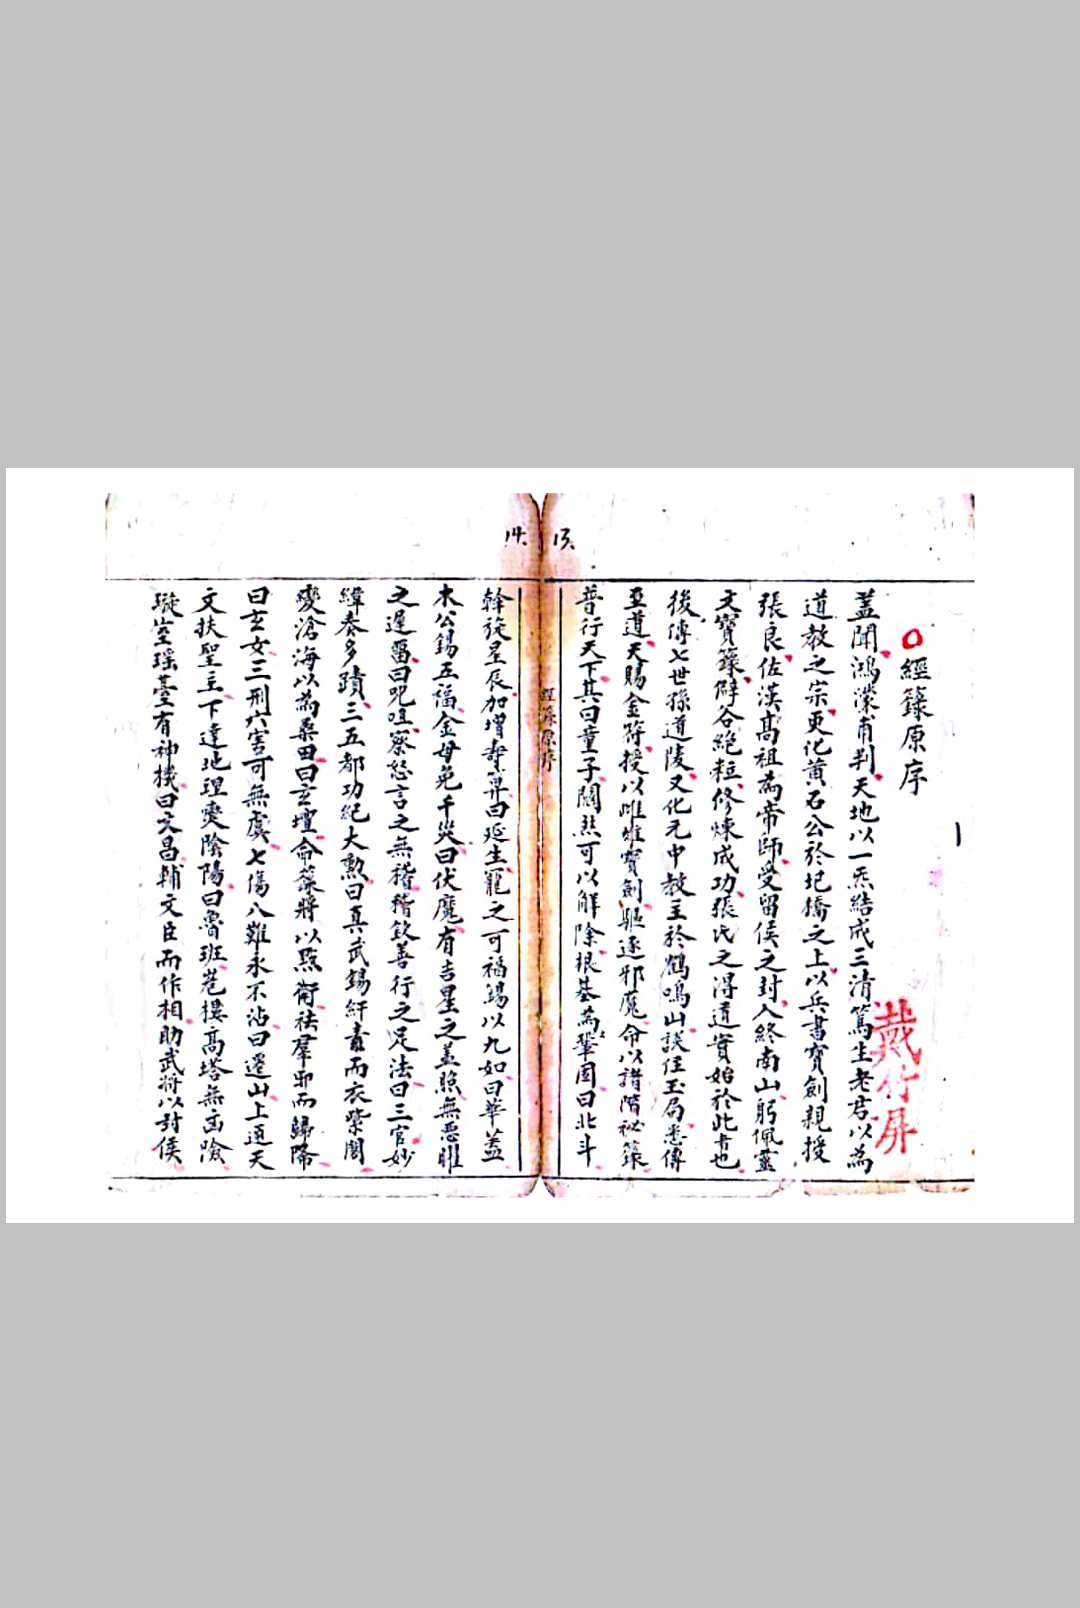 經籙原序
蓋聞鴻濛甫判天地以一炁結成三清篤生老君以為
道教之宗更化黃石公於圯橋之上以兵書寶劍親授
張良佐漢高祖為帝師受留侯之封入終南山躬佩靈
文寶籙辟谷絕粒修煉成功張氏之得道實始於此書也
後傳七世孫道陵又化元中教主於鶴鳴山談經玉局悉傳
至道天賜金符授以雌雄寶劍驅逐邪魔命以諸階祕籙
普行天下其曰童子關煞可以解除根基為鞏固曰北斗
戴竹屏
13.
經籙原序
14.
斡旋星辰加增壽算曰延生寵之可福錫以九如曰華蓋
木公錫五福金母免千災曰伏魔有吉星之蓋照無惡曜
之遲留曰咒咀察怒言之無稽稽欽善行之足法曰三官妙
緯奏多蹟三五都功紀大勲曰真武錫紆青而衣紫閣
變滄海以為桑田曰玄壇命藻將以點衛祛羣邪而歸降
曰玄女三刑六害可無虞七傷八難永不沾曰遷山上通天
文扶聖主下達地理燮陰陽曰魯班巻樓高塔無凶險
璇室瑶臺有神機曰文昌輔文臣而作相助武將以封侯